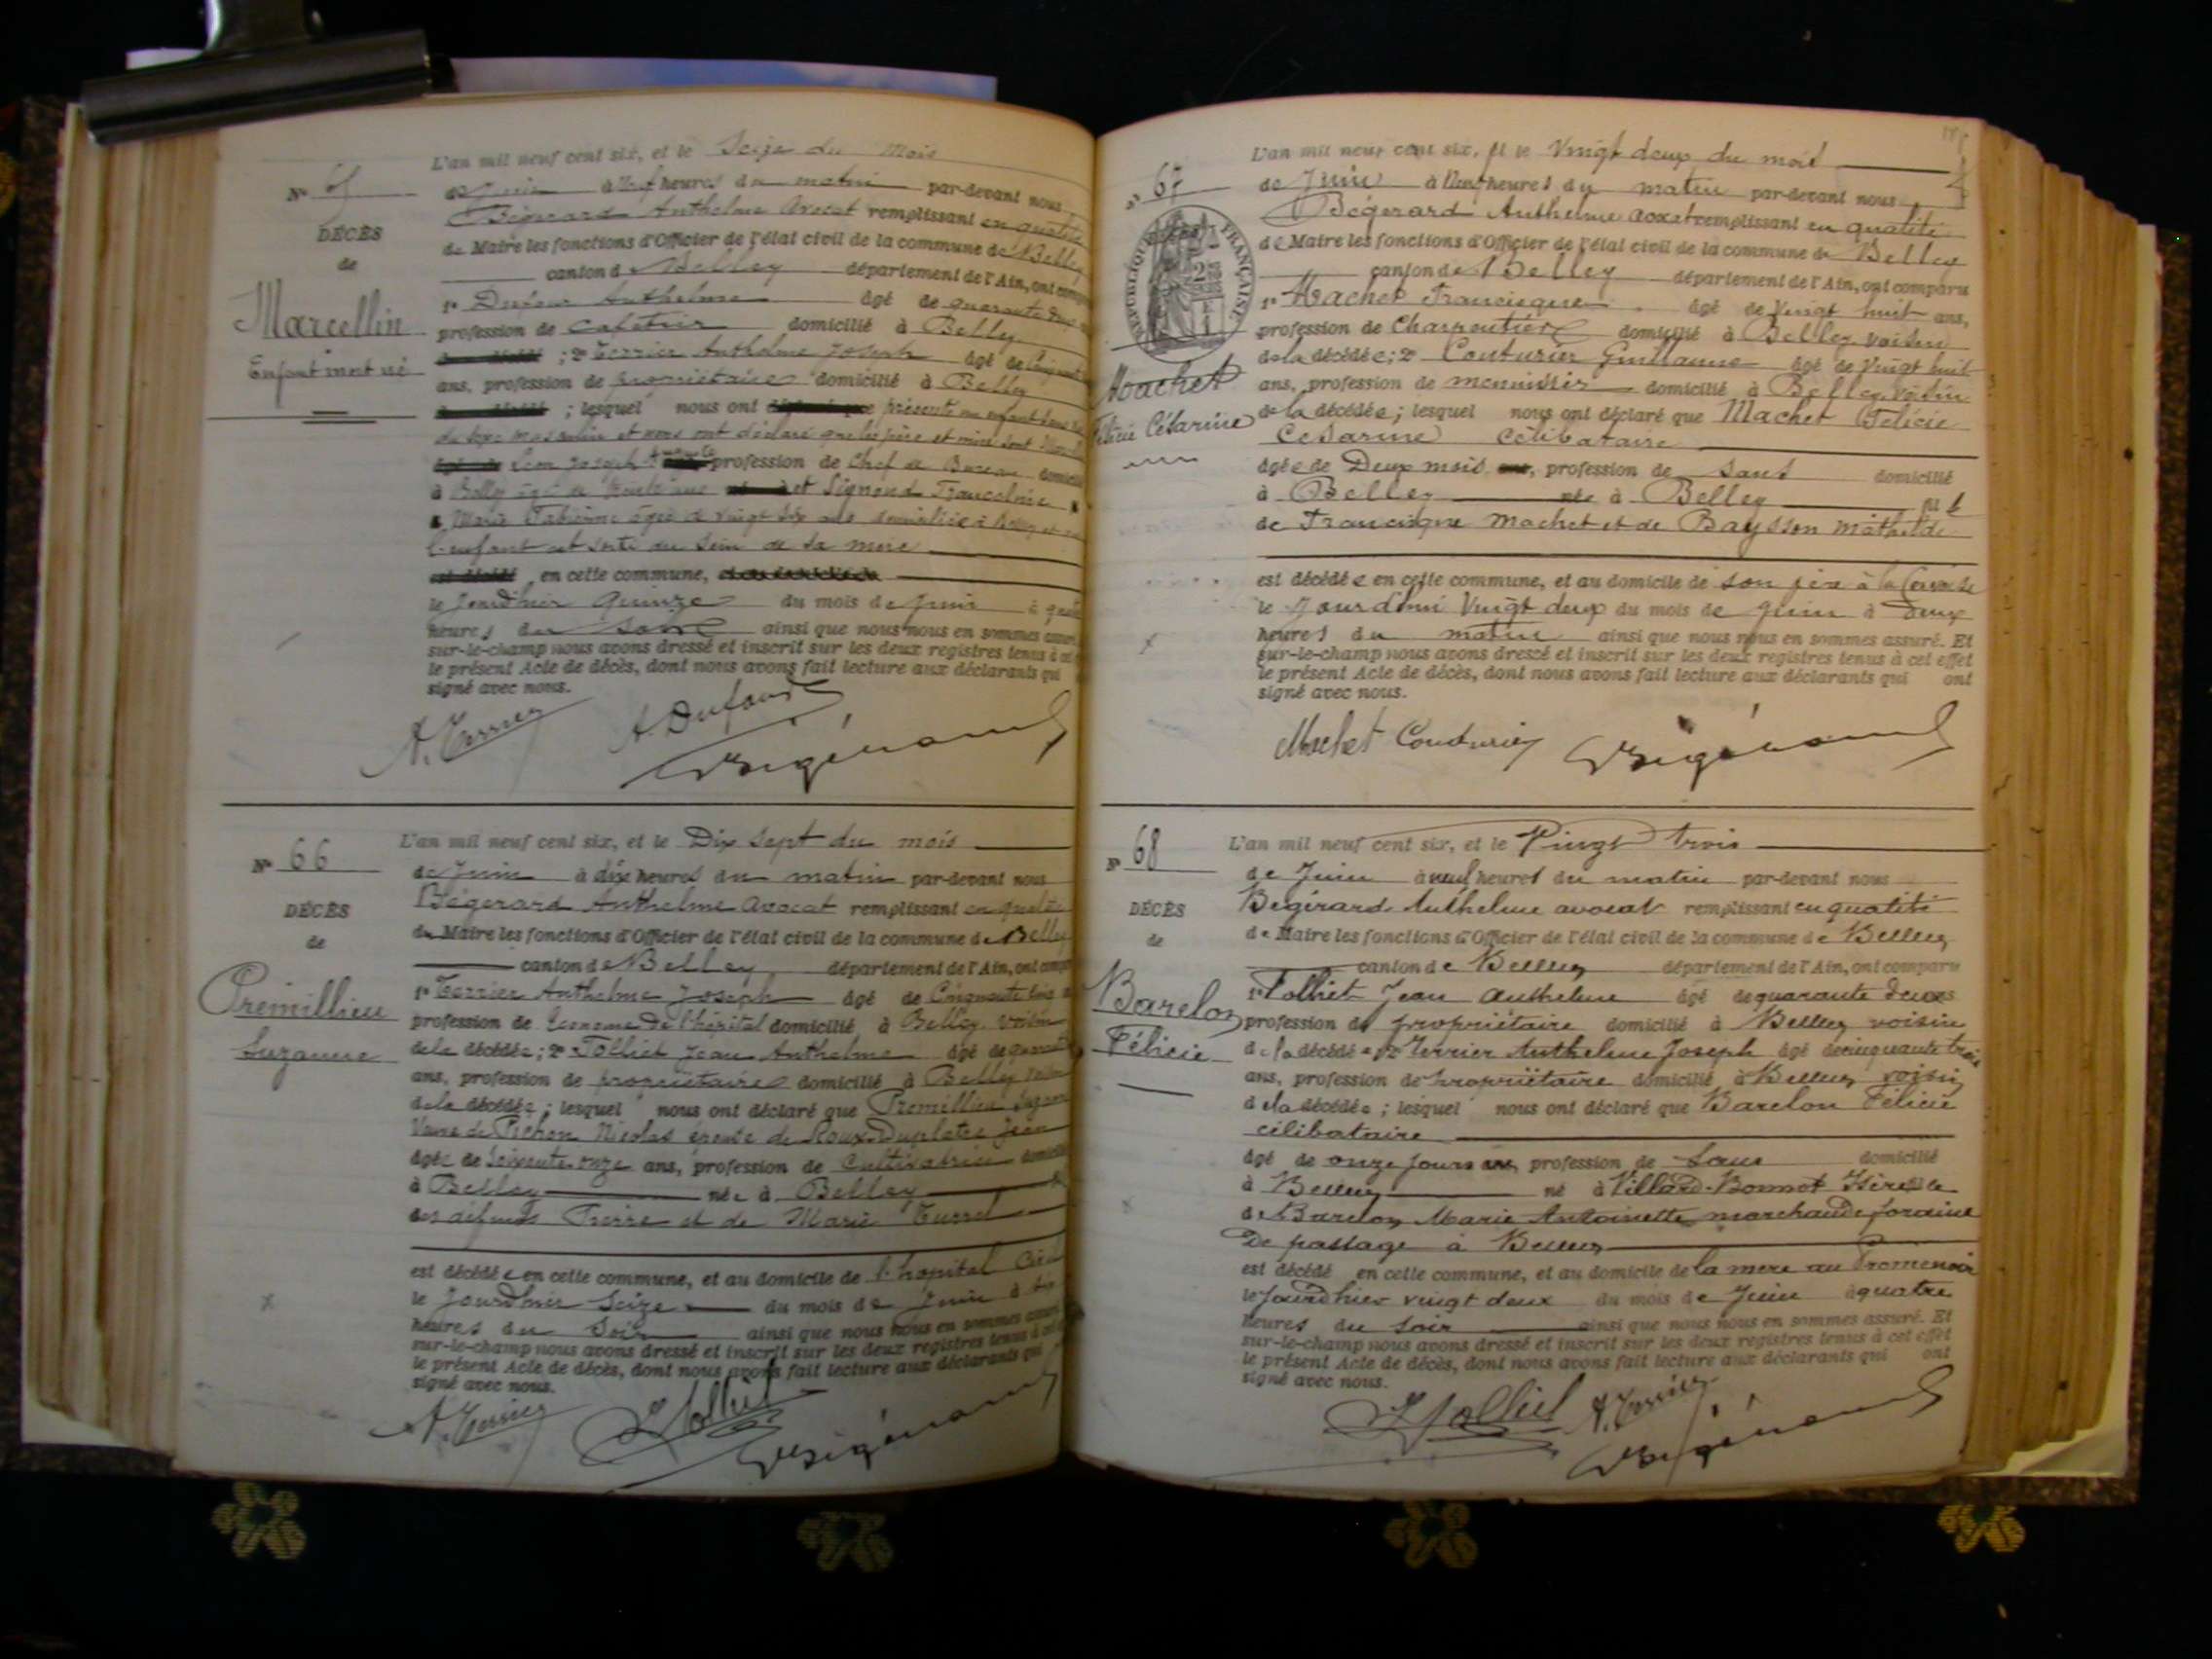 N° 65
DÉCÈS
de
Marcellin
Enfant mort né
L'an mil neuf cent six, et le Seize du mois
de Juin à Neuf heures du matin par-devant nous
Bégerard Anthelme Avocat remplissant en qualité
de Maire les fonctions d'Officier de l'état civil de la commune de Belley
canton de Belley département de l'Ain, ont comparu
1° Dufour Anthelme âgé de quarante deux
profession de Cafetier domicilié à Belley
; 2° Terrier Anthelme Joseph âgé de Cinquante
ans, profession de propriétaire domicilié à Belley
; lesquel nous ont présenté un enfant sans
du sexe masculin et nous ont déclaré que les père et mère sont
Leon Joseph profession de Chef de Bureau domicilié
à Belley âgé de trente ans et Signoud Francoline
Marie Fabienne âgée de vingt six ans domiciliée à Belley et
l'enfant est sorti du sein de sa mère
en cette commune,
le Jourd'hier Quinze du mois de Juin à quatre
heures du soir ainsi que nous nous en sommes assuré
sur-le-champ nous avons dressé et inscrit sur les deux registres tenus à cet
le présent Acte de décès, dont nous avons fait lecture aux déclarants qui
signé avec nous.
A. Terrier A. Dufour
Bégérard
N° 66
DÉCÈS
de
Premillieu
Suzanne
L'an mil neuf cent six, et le Dix sept du mois
de Juin à dix heures du matin par-devant nous
Bégerard Anthelme Avocat remplissant en qualité
de Maire les fonctions d'Officier de l'état civil de la commune de Belley
canton de Belley département de l'Ain, ont comparu
1° Terrier Anthelme Joseph âgé de Cinquante trois
profession de Econome de l'hôpital domicilié à Belley voisin
de la décédée ; 2° Tolliet Jean Anthelme âgé de quarante
ans, profession de propriétaire domicilié à Belley voisin
de la décédée ; lesquel nous ont déclaré que Premillieu Suzanne
Veuve de Pichon Nicolas épouse de Roux-Duplatre Jean
âgée de Soixante-onze ans, profession de Cultivatrice domicilié
à Belley née à Belley
des défunts Pierre et de Marie Turrel
est décédée en cette commune, et au domicile de l'hôpital
le Jourd'hier Seize du mois de Juin à six
heures du Soir ainsi que nous nous en sommes assuré
sur-le-champ nous avons dressé et inscrit sur les deux registres tenus à cet
le présent Acte de décès, dont nous avons fait lecture aux déclarants qui
signé avec nous.
A. Terrier J Tolliet
Bégérard
N° 67
RÉPUBLIQUE FRANÇAISE
Machet
Félicie Césarine
L'an mil neuf cent six, et le Vingt deux du mois
de Juin à Neuf heures du matin par-devant nous
Bégerard Anthelme avocat remplissant en qualité
de Maire les fonctions d'Officier de l'état civil de la commune de Belley
canton de Belley département de l'Ain, ont comparu
1° Machet Francisque âgé de Vingt huit ans,
profession de Charpentier domicilié à Belley voisin
de la décédée ; 2° Couturier Guillaume âgé de Vingt huit
ans, profession de menuisier domicilié à Belley voisin
de la décédée ; lesquel nous ont déclaré que Machet Félicie
Césarine Célibataire
âgée de Deux mois, profession de sans domicilié
à Belley née à Belley
de Francisque Machet et de Baysson Mathilde
est décédée en cette commune, et au domicile de son père à
le Jourd'hui Vingt deux du mois de Juin à Deux
heures du matin ainsi que nous nous en sommes assuré. Et
sur-le-champ nous avons dressé et inscrit sur les deux registres tenus à cet effet
le présent Acte de décès, dont nous avons fait lecture aux déclarants qui ont
signé avec nous.
Machet Couturier Bégérard
N° 68
DÉCÈS
de
Barelon
Félicie
L'an mil neuf cent six, et le Vingt trois
de Juin à neuf heures du matin par-devant nous
Bégérard Anthelme avocat remplissant en qualité
de Maire les fonctions d'Officier de l'état civil de la commune de Belley
canton de Belley département de l'Ain, ont comparu
1° Tolliet Jean Anthelme âgé de quarante deux
profession de propriétaire domicilié à Belley voisin
de la décédée 2° Terrier Anthelme Joseph âgé de cinquante trois
ans, profession de propriétaire domicilié à Belley voisin
de la décédée ; lesquel nous ont déclaré que Barelon Félicie
célibataire
âgé de onze jours ans, profession de Sans domicilié
à Belley né à Villard-Bonnot Isère
de Barelon Marie Antoinette marchande foraine
De passage à Belley
est décédé en cette commune, et au domicile de la mère au Promenoir
le Jourd'hier vingt deux du mois de Juin à quatre
heures du soir ainsi que nous nous en sommes assuré. Et
sur-le-champ nous avons dressé et inscrit sur les deux registres tenus à cet effet
le présent Acte de décès, dont nous avons fait lecture aux déclarants qui ont
signé avec nous.
J Tolliet A. Terrier
Bégérard